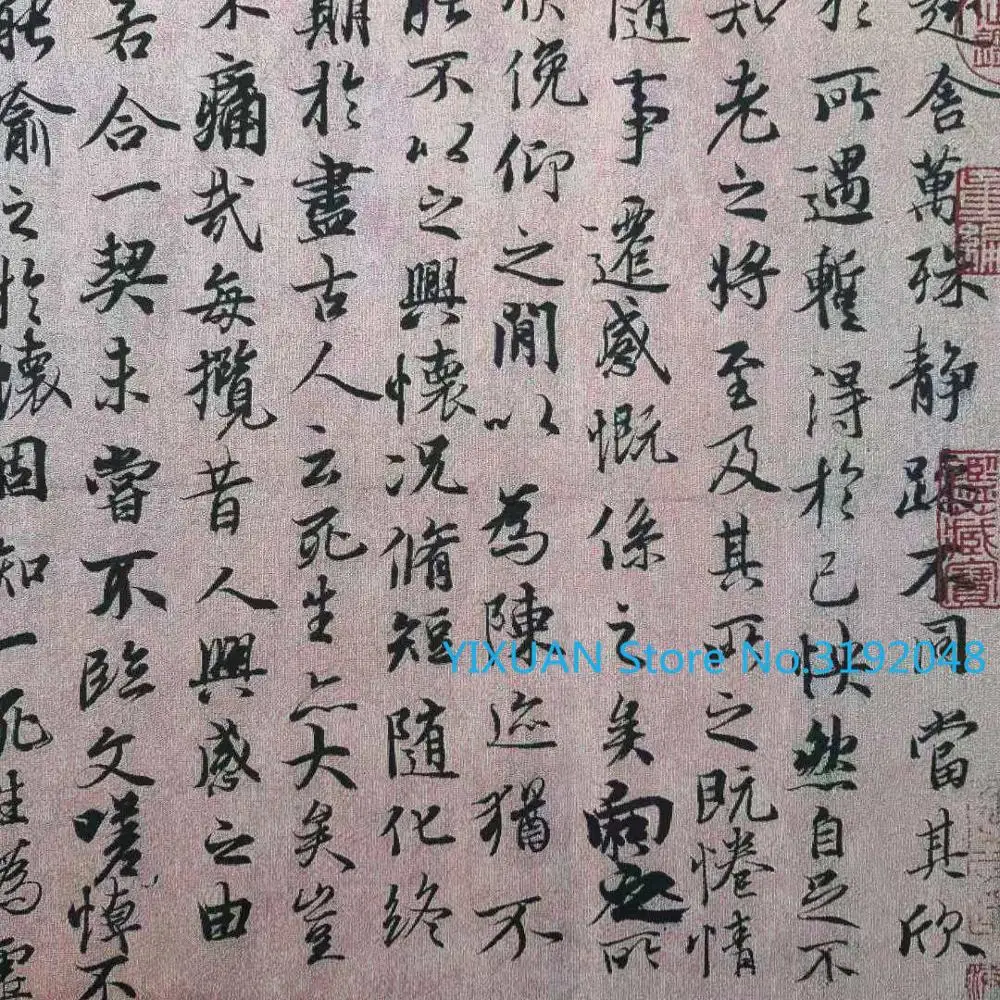 趣舍萬殊静躁不同當其欣
於所遇暫得於己怏然自足不
知老之將至及其所之既惓情
隨事遷感慨係之矣向之所
欣俛仰之閒以為陳迹猶不
能不以之興懷況脩短隨化終
期於盡古人云死生亦大矣豈
不痛哉每攬昔人興感之由
若合一契未嘗不臨文嗟悼不
能喻之於懷固知一死生為虛
YIXUAN Store No.3192048